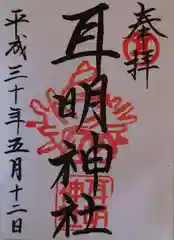 奉拝
耳明神社
平成三十年五月十二日